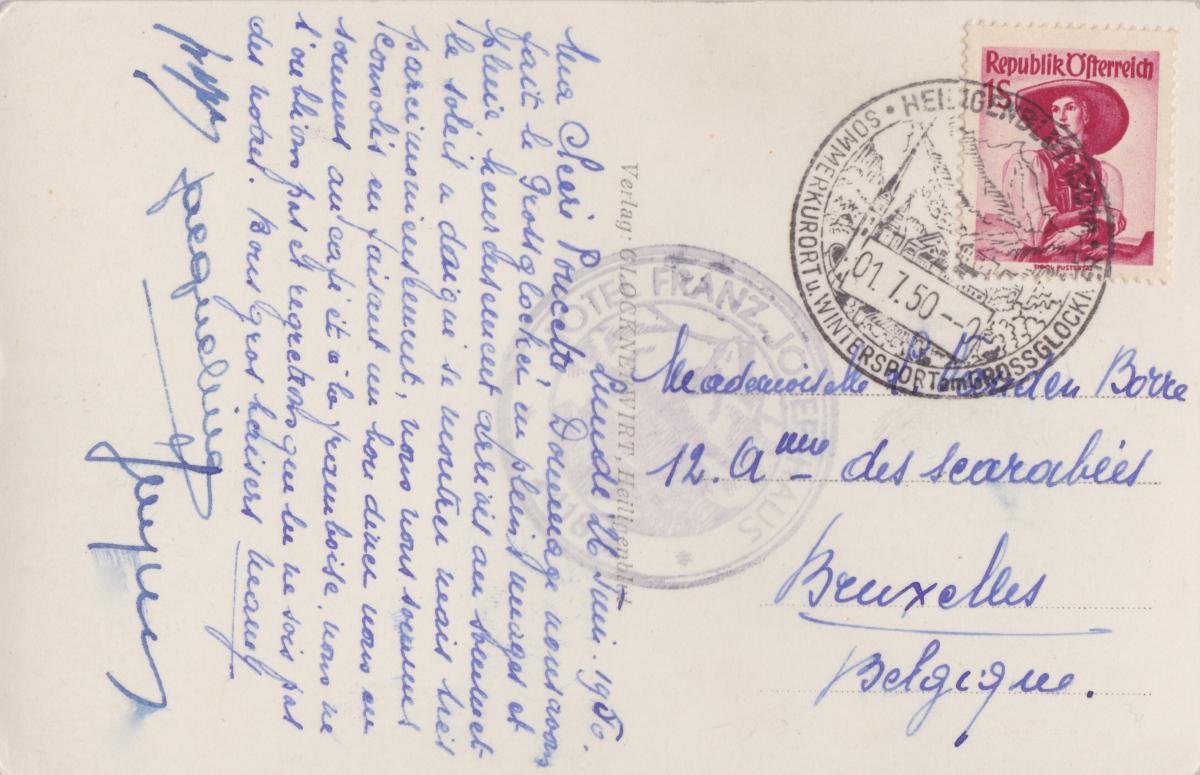 Lundi 26 Juin. 1950.
Ma Poucette, Dommage nous avons
fait le Grossglockner en plein nuages et
pluie heureusement arrivés au sommet
le soleil a daigné se montrer mais très
parcimonieusement, nous nous sommes
consolés en faisant un bon diner nous en
sommes au café et à la framboise. nous ne
t'oublions pas et regrettons que tu ne sois pas
des notres. Bons gros baisers
Jacqueline
Verlag: GLOCKNERWIRT, Heiligenblut
HOTEL FRANZ-JOSEF-HAUS
Republik Österreich
1S
TIROL PUSTERTAL
HEILIGENBLUT 1301 m
SOMMERKURORT u. WINTERSPORT am GROSSGLOCKN.
01.7.50
Mademoiselle Vanden Borre
12. Ave des scarabées
Bruxelles
Belgique.